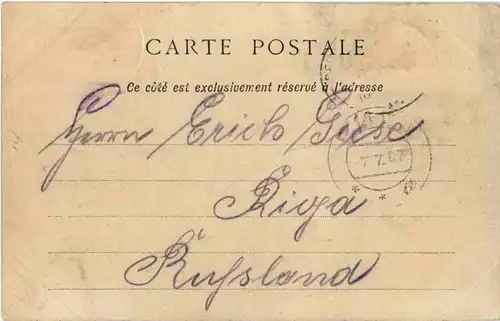 CARTE POSTALE
Ce côté est exclusivement réservé à l'adresse
Herrn Erich Giese
7.7.02
Riga
Rußland